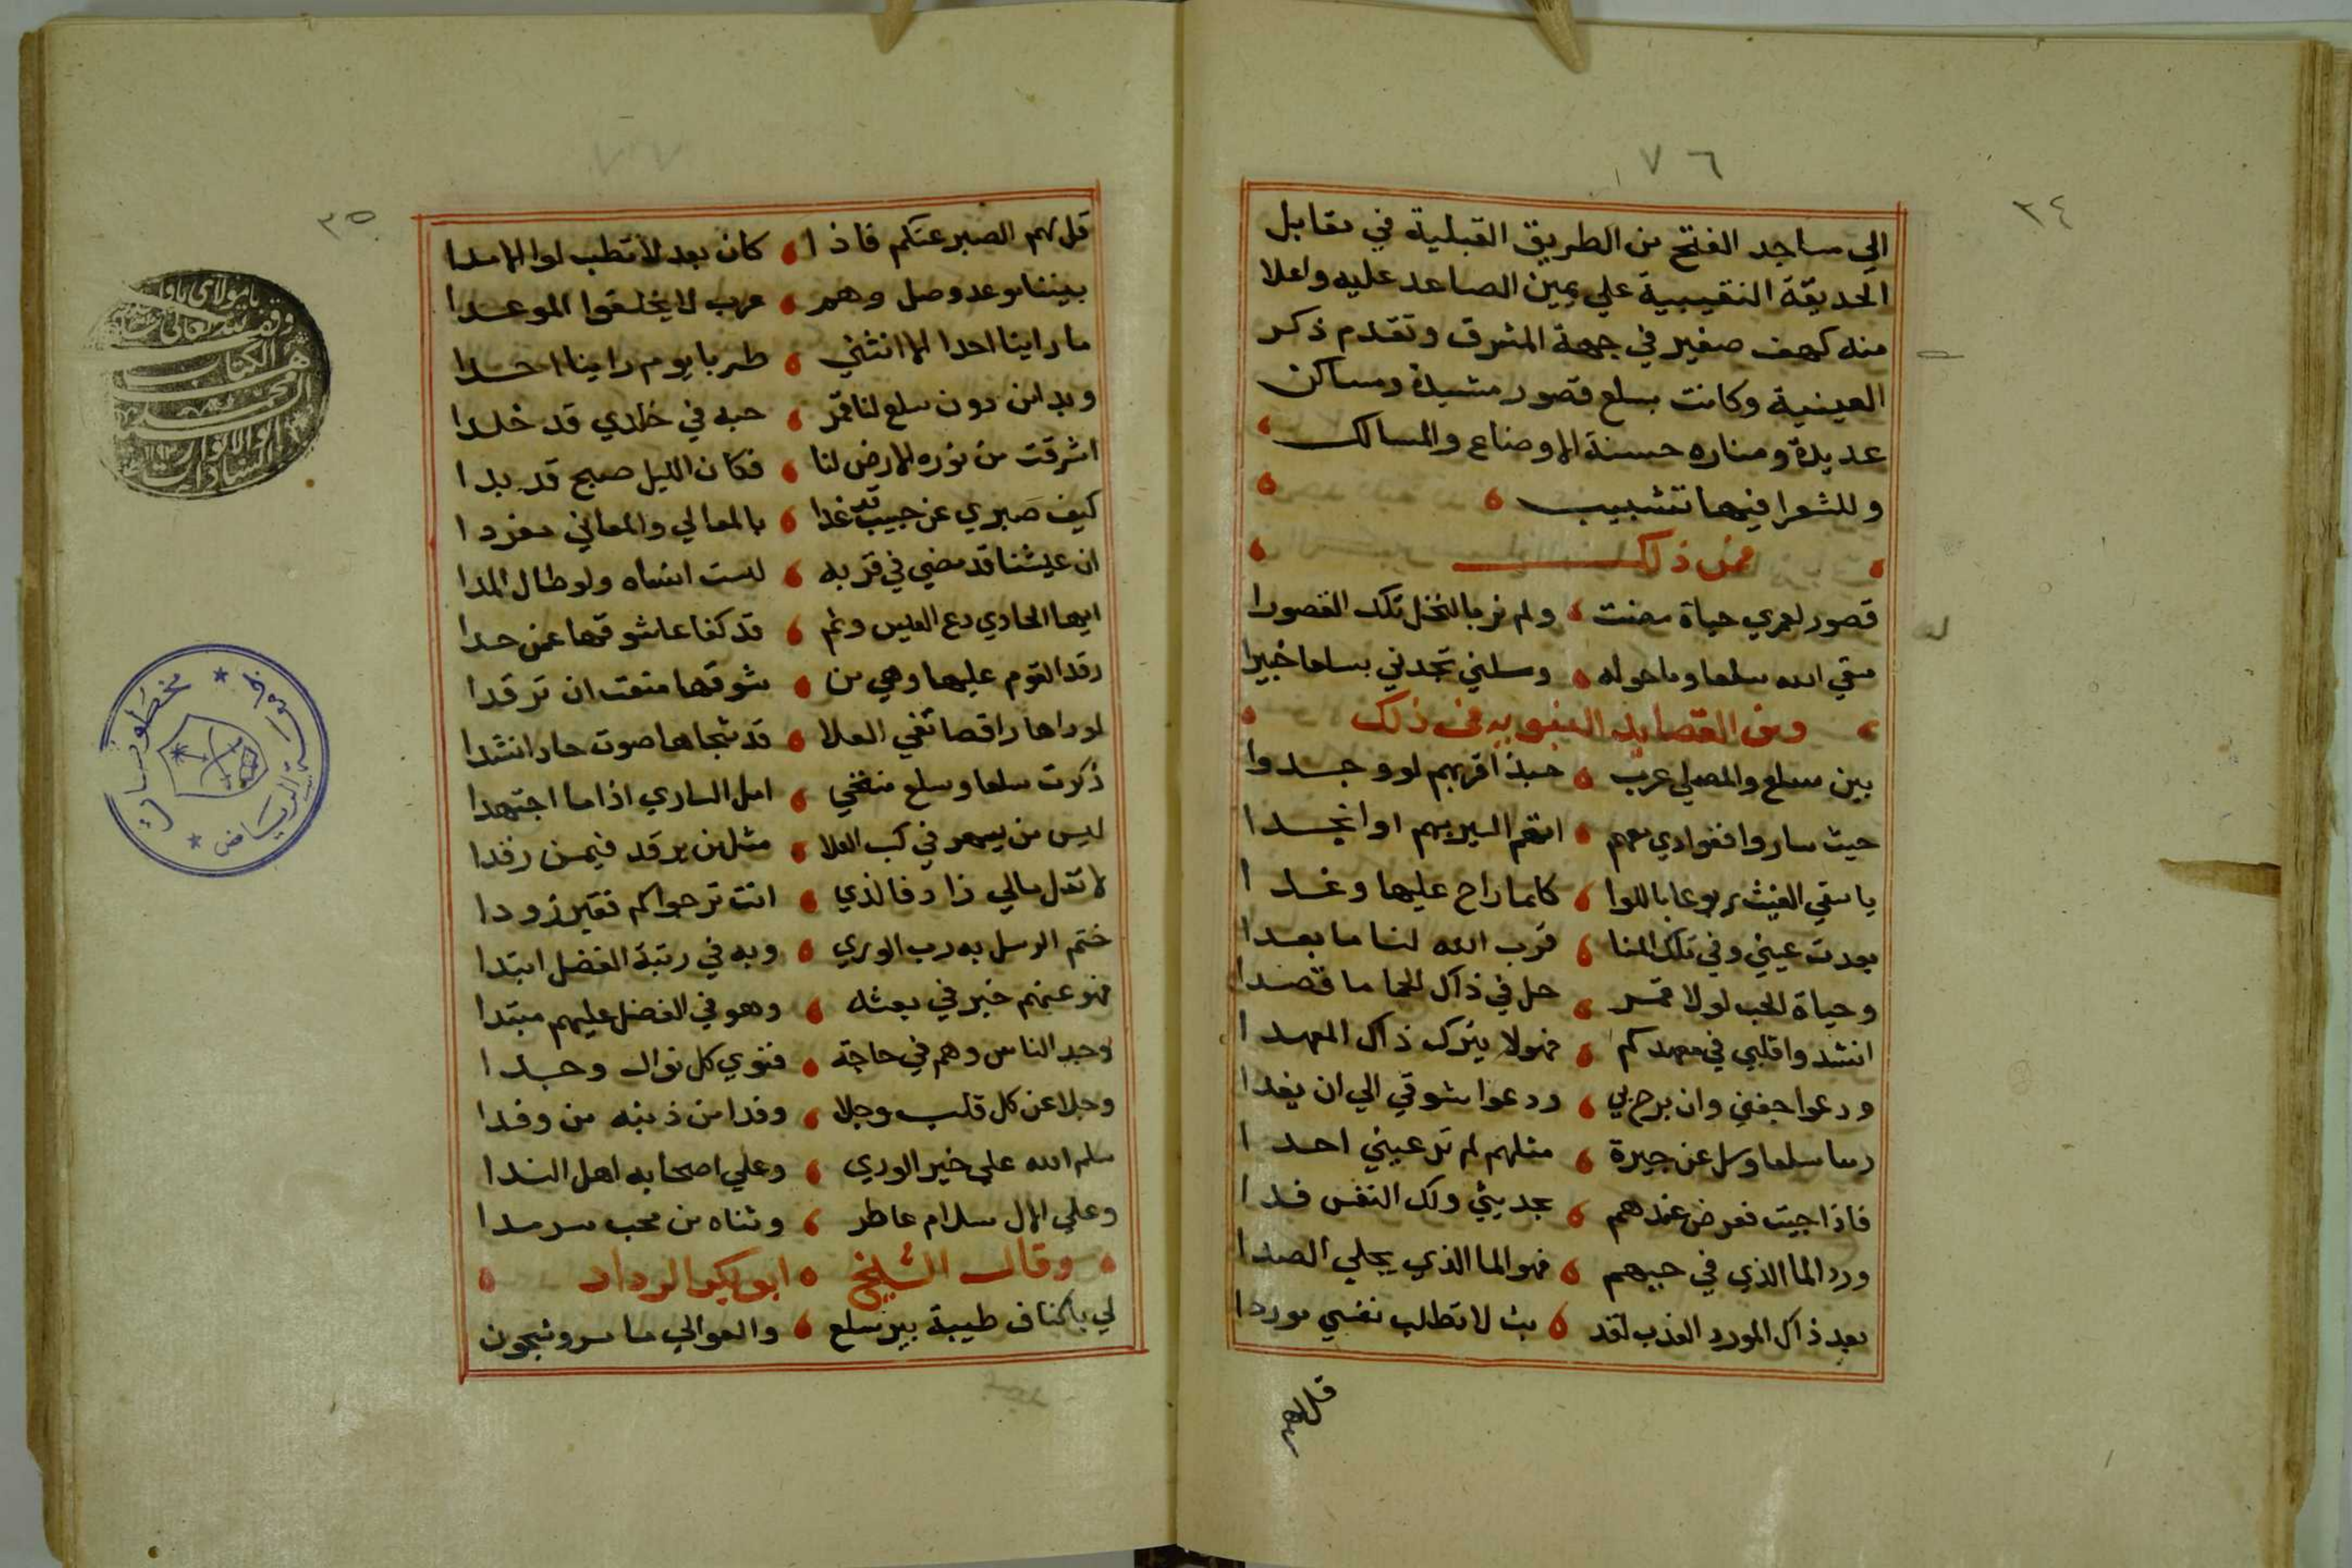 ٧٦
٣٤
الي مساجد الفتح من الطريق القبلية في مقابل
الحديقة النقيبية علي يمين الصاعد عليه واعلا
منه كهف صغير في جهة المشرق وتقدم ذكر
العينية وكانت بسلع قصور مشيدة ومساكن
عديدة ومناره حسنة الاوضاع والمسالك
وللشعرا فيها تشبيب
فمن ذلك
قصور لعمري حياة مضت ولم نر بالنخل تلك القصورا
سقي الله سلعا وما حوله وسلني تجدني بسلعا خبيرا
ومن القصايد النبويه فمن ذلك
بين سلع والمصلي عرب حبذا قربهم لو وجدوا
حيث ساروا ففوادي معهم اتهم السير بهم او انجدا
يا سقي الغيث ربوعا باللوا كلما راح عليها وغدا
بعدت عيني وفي تلك المنا قرب الله لنا ما بعدا
وحياة الحب لولا قمر حل في ذاك الحما ما قصدا
انشدوا قلبي في معهدكم فهو لا يترك ذاك المعهدا
ودعوا جفني وان برح بي ودعوا شوقي الي ان يفدا
سلعا وسل عن جيرة مثلهم لم تر عيني احدا
فاذا جيت فعرض عندهم بحديثي ولك النفس فدا
ورد الما الذي في حبهم فهو الما الذي يجلي الصدا
بعد ذاك المورد العذب لقد بت لا تطلب نفسي موردا
قل لهم
٧٧
٣٥
قل لهم الصبر عنكم فاذا كان بعد لا تطب لوا الامدا
بيننا موعد وصل وهم عرب لا يخلفوا الموعدا
ما راينا احدا الا انثني طربا يوم راينا احدا
وبدا من دون سلع لنا قمر حبه في خلدي قد خلدا
اشرقت من نوره الارض لنا فكان الليل صبح قد بدا
كيف صبري عن حبيب قد غدا بالمعالي والمعاني مفردا
ان عيشنا قد مضي في قربه لست انساه ولو طال المدا
ايها الحادي دع العيس ونم قد كفا عاشوقها عمن حدا
رقد القوم عليها وهي من شوقها منعت ان ترقدا
لو راها راقصا تغي الفلا قد شجاها صوت حاد انشدا
ذكرت سلعا وسلع امل الساري اذا ما اجتهدا
ليس من يسهر في كسب العلا مثل من يرقد فيمن رقدا
لا تقل مالي زاد فالذي انت ترجوا كم فقير زودا
ختم الرسل به رب الوري وبه في رتبة الفضل ابتدا
فهو عنهم خبر في بعثه وهو في الفضل عليهم مبتدا
وجد الناس وهم في حاجة فنوي كل نوال وجدا
وجلا عن كل قلب وجلا وفدا من ذنبه من وفدا
سلم الله علي خير الوري وعلي اصحابه اهل الندا
وعلي الال سلام عاطر وثناه من محب سرمدا
وقال الشيخ ابو بكر الرداد
لي باكناف طيبة بين سلع والعوالي ما سر وشجون
يا مولاي
وقف
هذا الكتاب
مخطوطات
الرياض